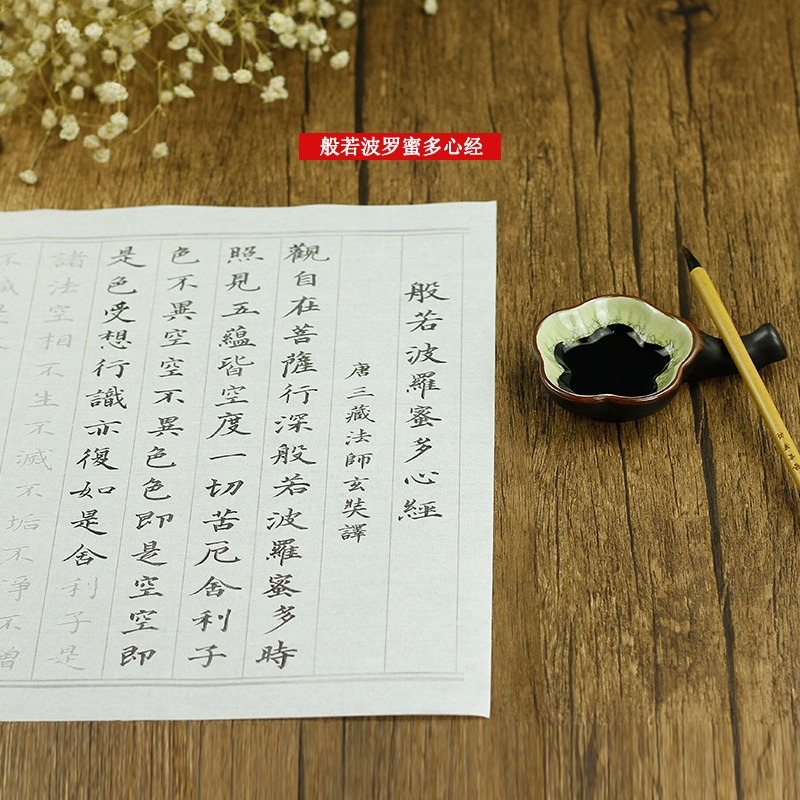 般若波罗蜜多心经
般若波羅蜜多心經
唐三藏法師玄奘譯
觀自在菩薩行深般若波羅蜜多時
照見五蘊皆空度一切苦厄舍利子
色不異空空不異色色即是空空即
是色受想行識亦復如是舍利子是
諸法空相不生不滅不垢不淨不增